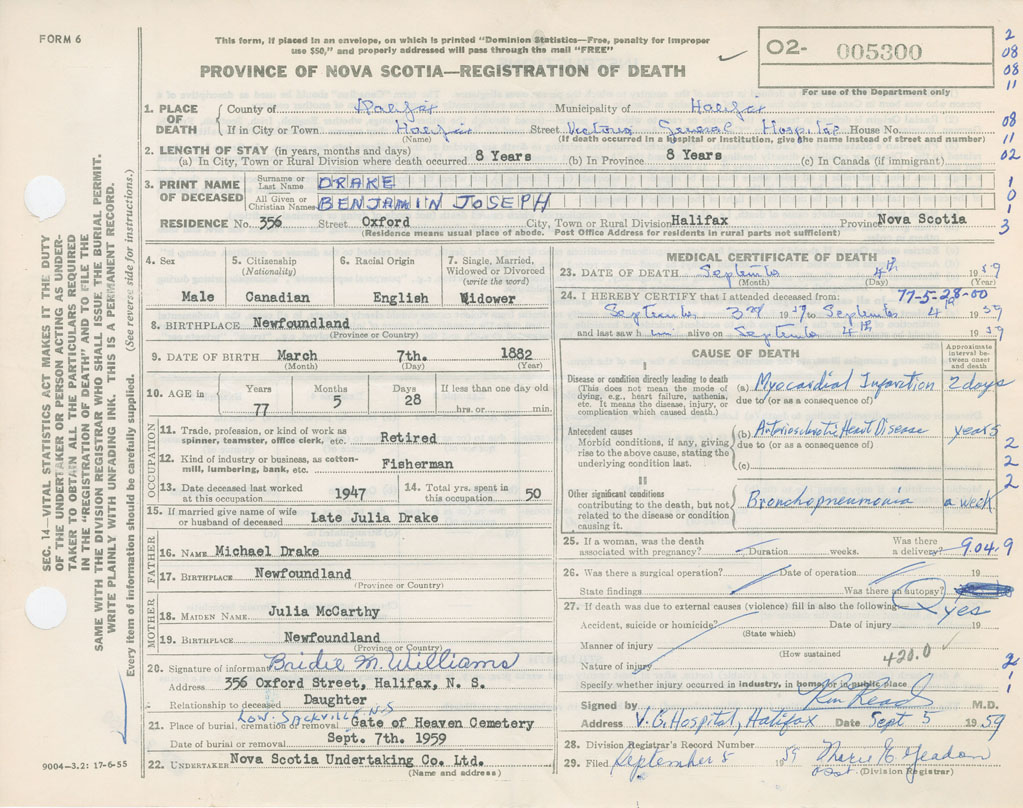 FORM 6
This form, if placed in an envelope, on which is printed "Dominion Statistics—Free, penalty for improper
use $50," and properly addressed will pass through the mail "FREE"
PROVINCE OF NOVA SCOTIA—REGISTRATION OF DEATH
O2- 005300
For use of the Department only
2
08
08
11
08
11
02
1
0
1
3
1. PLACE OF DEATH County of Halifax Municipality of Halifax
If in City or Town Halifax Street Victoria General Hospital House No.
(Name) (If death occurred in a hospital or institution, give the name instead of street and number)
2. LENGTH OF STAY (in years, months and days)
(a) In City, Town or Rural Division where death occurred 8 Years (b) In Province 8 Years (c) In Canada (if immigrant)
3. PRINT NAME OF DECEASED Surname or Last Name DRAKE
All Given or Christian Names BENJAMIN JOSEPH
RESIDENCE No. 356 Street Oxford City, Town or Rural Division Halifax Province Nova Scotia
(Residence means usual place of abode. Post Office Address for residents in rural parts not sufficient)
4. Sex 5. Citizenship (Nationality) 6. Racial Origin 7. Single, Married, Widowed or Divorced (write the word)
Male Canadian English Widower
8. BIRTHPLACE Newfoundland
(Province or Country)
9. DATE OF BIRTH March 7th. 1882
(Month) (Day) (Year)
10. AGE in Years Months Days If less than one day old
77 5 28 hrs. or min.
OCCUPATION
11. Trade, profession, or kind of work as spinner, teamster, office clerk, etc. Retired
12. Kind of industry or business, as cotton-mill, lumbering, bank, etc. Fisherman
13. Date deceased last worked at this occupation 1947 14. Total yrs. spent in this occupation 50
15. If married give name of wife or husband of deceased Late Julia Drake
FATHER
16. NAME Michael Drake
17. BIRTHPLACE Newfoundland
(Province or Country)
MOTHER
18. MAIDEN NAME Julia McCarthy
19. BIRTHPLACE Newfoundland
(Province or Country)
20. Signature of informant Bridie M. Williams
Address 356 Oxford Street, Halifax, N. S.
Relationship to deceased Daughter
Low. Sackville N.S
21. Place of burial, cremation or removal Gate of Heaven Cemetery
Date of burial or removal Sept. 7th. 1959
22. UNDERTAKER Nova Scotia Undertaking Co. Ltd.
(Name and address)
MEDICAL CERTIFICATE OF DEATH
23. DATE OF DEATH September 4th 1959
(Month) (Day) (Year)
24. I HEREBY CERTIFY that I attended deceased from: 77-5-28-00
September 3rd 1959 to September 4th 1959
and last saw him alive on September 4th 1959
CAUSE OF DEATH
Approximate interval between onset and death
I
Disease or condition directly leading to death
(This does not mean the mode of dying, e.g., heart failure, asthenia, etc. It means the disease, injury, or complication which caused death.)
(a) Myocardial Infarction 2 days
due to (or as a consequence of)
Antecedent causes
Morbid conditions, if any, giving rise to the above cause, stating the underlying condition last.
(b) Arteriosclerotic Heart Disease years
due to (or as a consequence of)
(c)
II
Other significant conditions
contributing to the death, but not related to the disease or condition causing it.
Bronchopneumonia a week
2
2
2
25. If a woman, was the death associated with pregnancy? Duration weeks. Was there a delivery? 9.04.9
26. Was there a surgical operation? Date of operation 19
State findings Was there an autopsy? yes
27. If death was due to external causes (violence) fill in also the following:
Accident, suicide or homicide? Date of injury 19
(State which)
Manner of injury
(How sustained) 420.0
Nature of injury
2
1
1
Specify whether injury occurred in industry, in home, or in public place
Signed by M.D.
Address V.G. Hospital, Halifax Date Sept 5 1959
28. Division Registrar's Record Number
29. Filed September 5 1959
(Division Registrar)
SEC. 14—VITAL STATISTICS ACT MAKES IT THE DUTY
OF THE UNDERTAKER OR PERSON ACTING AS UNDER-
TAKER TO OBTAIN ALL THE PARTICULARS REQUIRED
IN THE "REGISTRATION OF DEATH" AND TO FILE THE
SAME WITH THE DIVISION REGISTRAR WHO SHALL ISSUE THE BURIAL PERMIT.
WRITE PLAINLY WITH UNFADING INK. THIS IS A PERMANENT RECORD.
Every item of information should be carefully supplied. (See reverse side for instructions.)
9004—3.2: 17-6-55